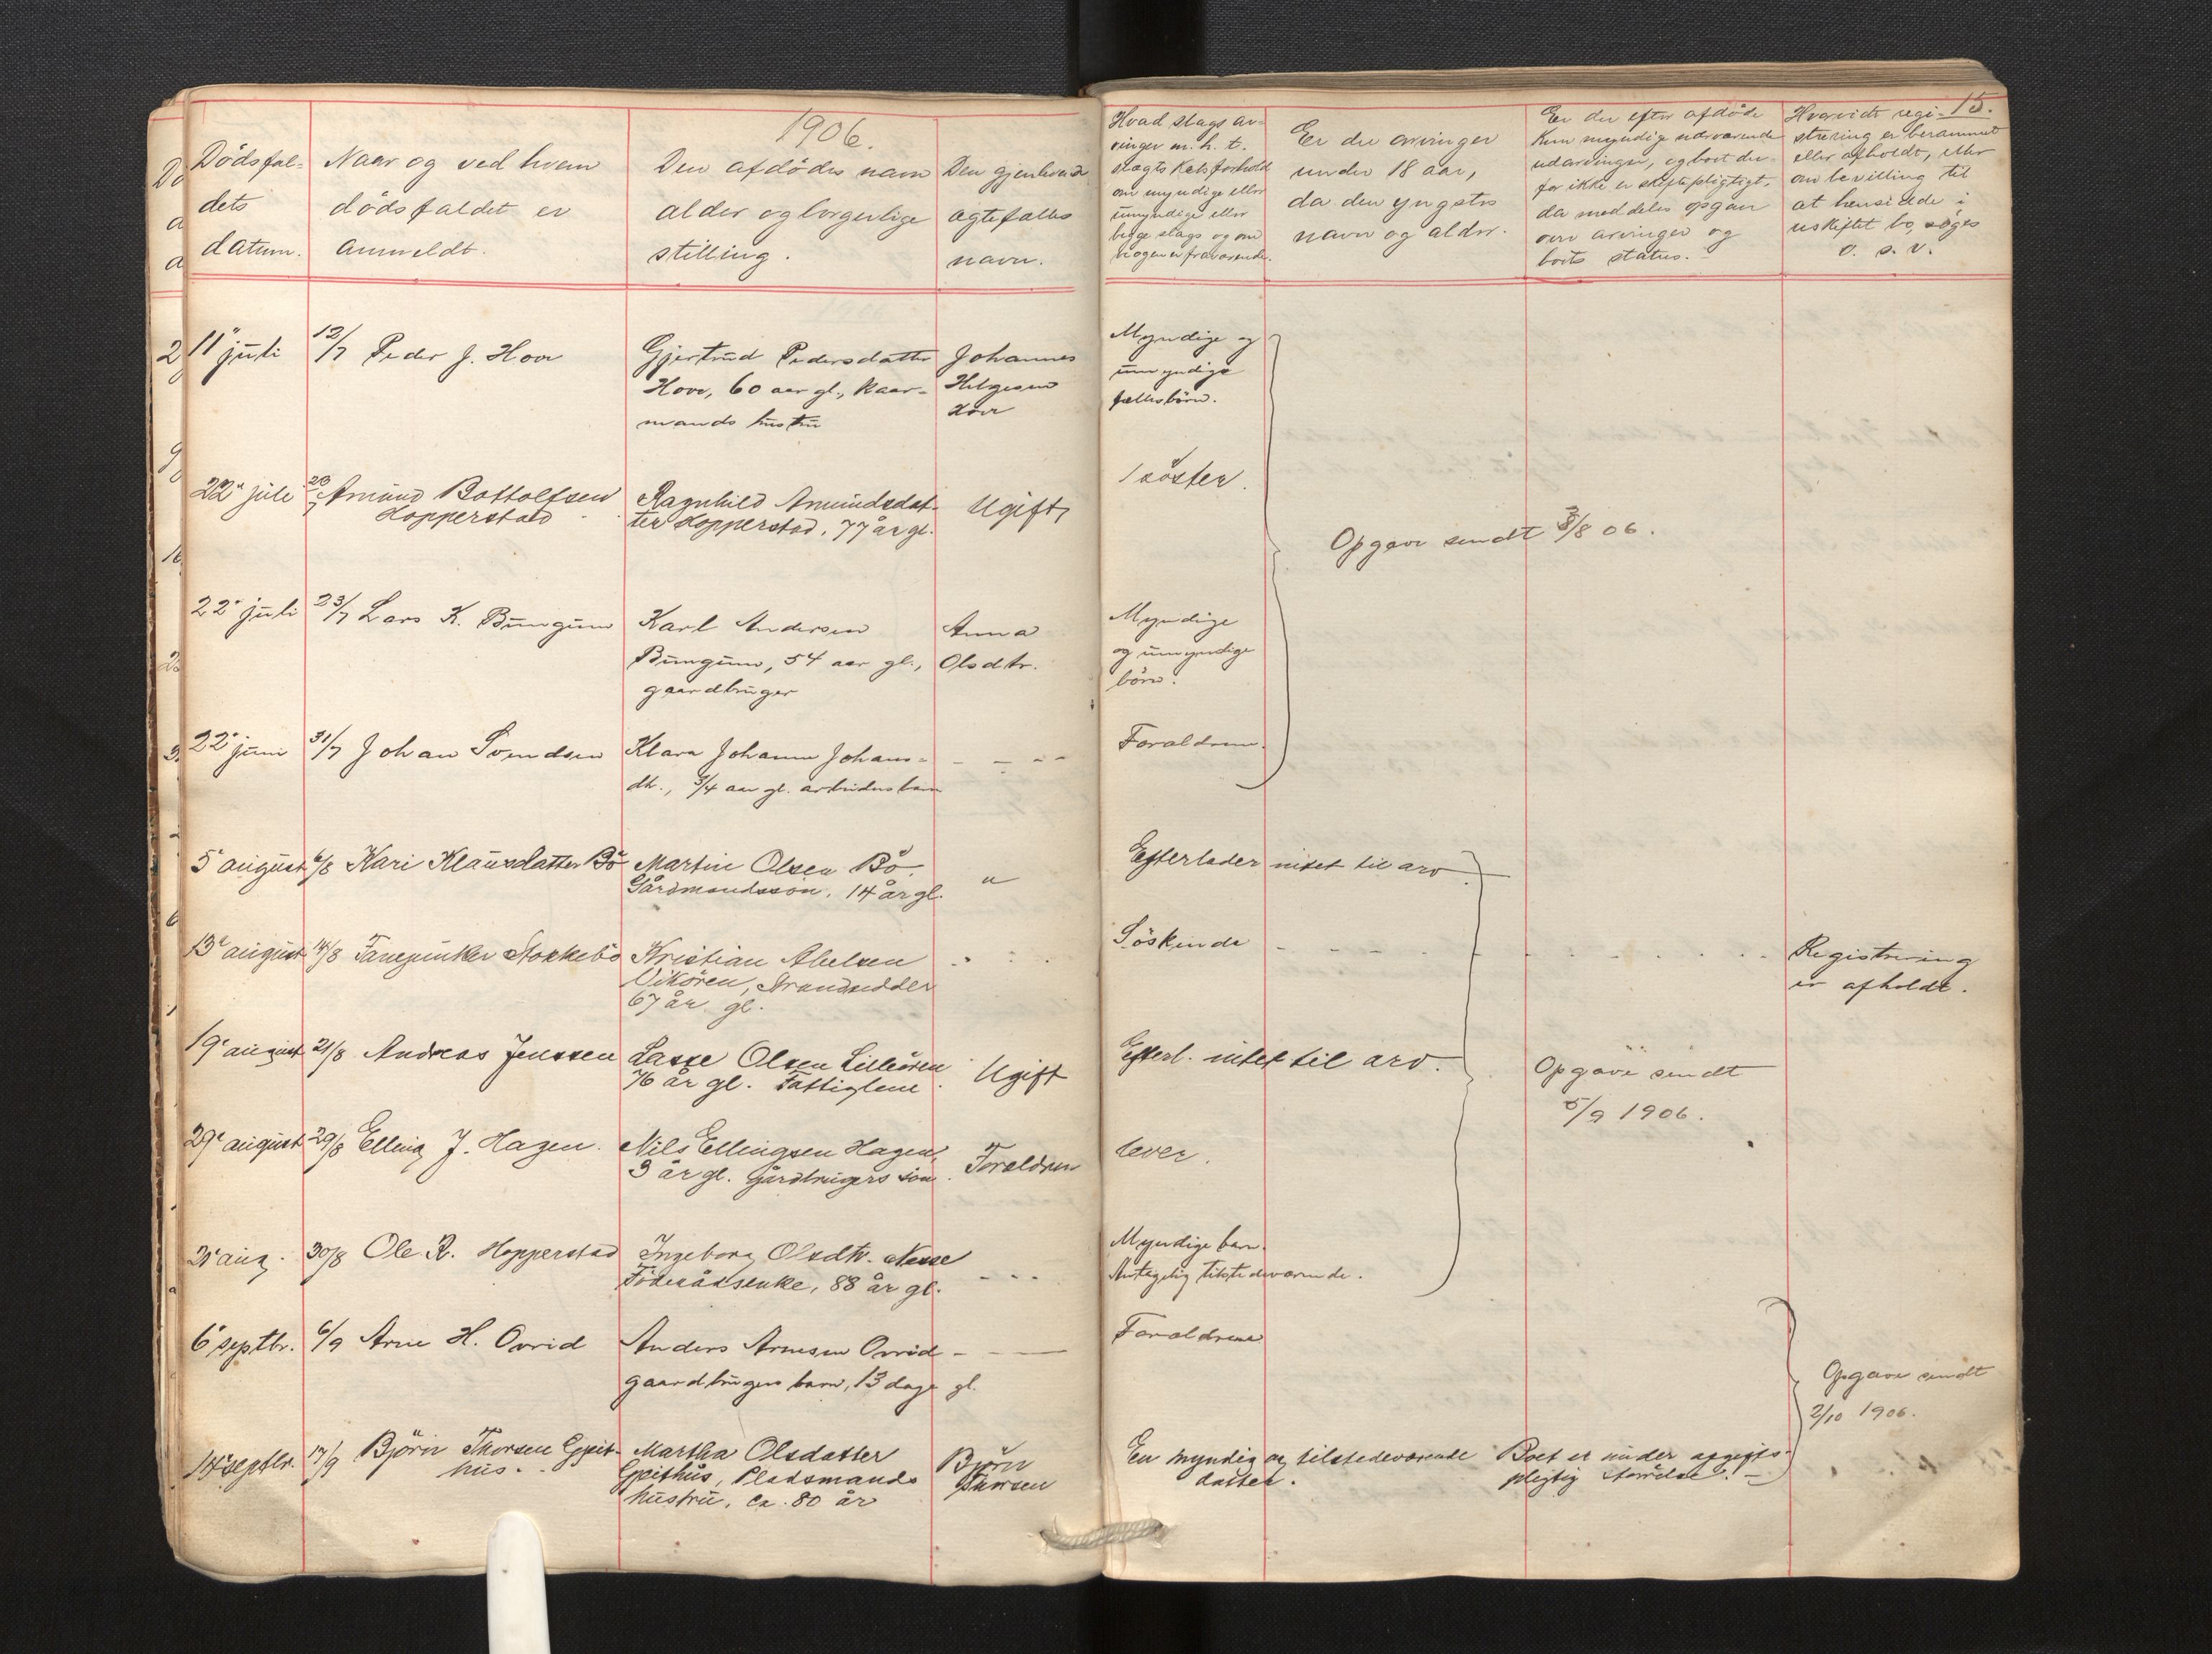 1906.
15.
Dödsfal-
dets
datum.
Naar og ved hvem
dödsfaldet er
anmeldt.
Den afdödes navn
alder og borgerlige
stilling.
Den gjenlevende
ægtefælles
navn.
Hvad slags ar-
vinger m. h. t.
slægtskabsforhold
om myndige eller
umyndige eller
begge slags og om
nogen er fraværende.
Er der arvinger
under 18 aar,
da den yngstes
navn og alder.
Er der efter afdöde
kun myndige nærværende
udarvinger, og boet der-
for ikke er skiftepligtigt,
da meddeles opgave
over arvinger og
boets status.
Hvorvidt regi-
strering er berammet
eller afholdt, eller
om bevilling til
at hensidde i
uskiftet bo, söges
o. s. v.
11' juli 12/7 Peder J. Hove
Gjertrud Pedersdatter
Hove, 60 aar gl., kaar-
mands hustru
Johannes
Helgesen
Hove
Myndige og
umyndige
fællesbörn.
22' juli 23/7 Amund Bottolfsen
Hopperstad
Ragnhild Amundsdat-
ter Hopperstad, 77 år gl.
Ugift,
1 söster.
Opgave sendt 3/8 06.
22' juli 23/7 Lars K. Bungum
Karl Andersen
Bungum, 54 aar gl.,
gaardbruger
Anna
Olsdtr.
Myndige
og umyndige
börn.
22' juni 31/7 Johan Svendsen
Klara Johanne Johans-
dtr., 3/4 aar gl. arbeidersbarn
- - - -
Forældrene.
5' august 6/8 Kari Klausdatter Bö
Martin Olsen Bö.
Gårdmandssön, 14 år gl.
"
Efterlader intet til arv.
13' august 14/8 Tanejunker Stokkebö
Kristian Abelsen
Vikören, Strandsidder
67 år gl.
Söskende
Registrering
er afholdt.
19' august 21/8 Andreas Jenssen
Lasse Olsen Lilleören
76 år gl. Fattiglem.
Ugift
Efterl. intet til arv.
Opgave sendt
5/9 1906.
29' august 29/8 Elling J. Hagen.
Nils Ellingsen Hagen,
3 år gl. Gårdbrugers sön.
Forældren
lever.
aug. 30/8 Ole R. Hopperstad
Ingeborg Olsdtr. Nesse
Föderådsenke, 88 år gl.
- - -
Myndige barn.
Antagelig tilstedeværende.
6' septbr. 6/9 Arne H. Orvid
Anders Arnesen Orvid
gaardbrugers barn, 13 dage gl.
Forældrene
Opgave sendt
2/10 1906.
14' septbr. 17/9 Björn Thorsen Gpeit-
hus.
Martha Olsdatter
Gpeithus, Pladsmands
hustru, ca. 80 år
Björn
Thorsen
En myndig og tilstedeværende
datter.
Boet er under afgifts-
pligtig störrelse. -